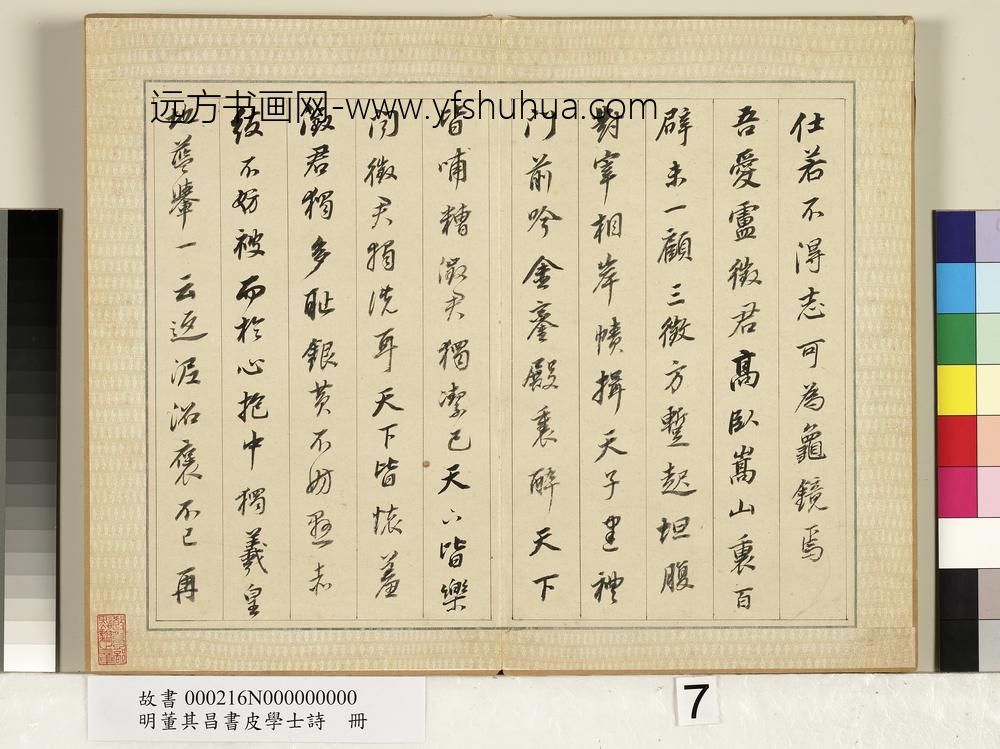 远方书画网-www.yfshuhua.com
仕若不得志可為龜鏡焉
吾愛盧徵君高臥嵩山裏百
辟未一顧三徵方蹔起坦腹
對宰相岸幘揖天子建禮
門前吟金鑾殿裏醉天下
皆哺糟徵君獨潔己天下皆樂
聞徵君獨洗耳天下皆懷羞
徵君獨多恥銀黃不妨懸赤
紱不妨被而於心抱中獨羲皇
地籃轝一云返泥沼褒不已再
故書 000216N000000000
明董其昌書皮學士詩 冊
7